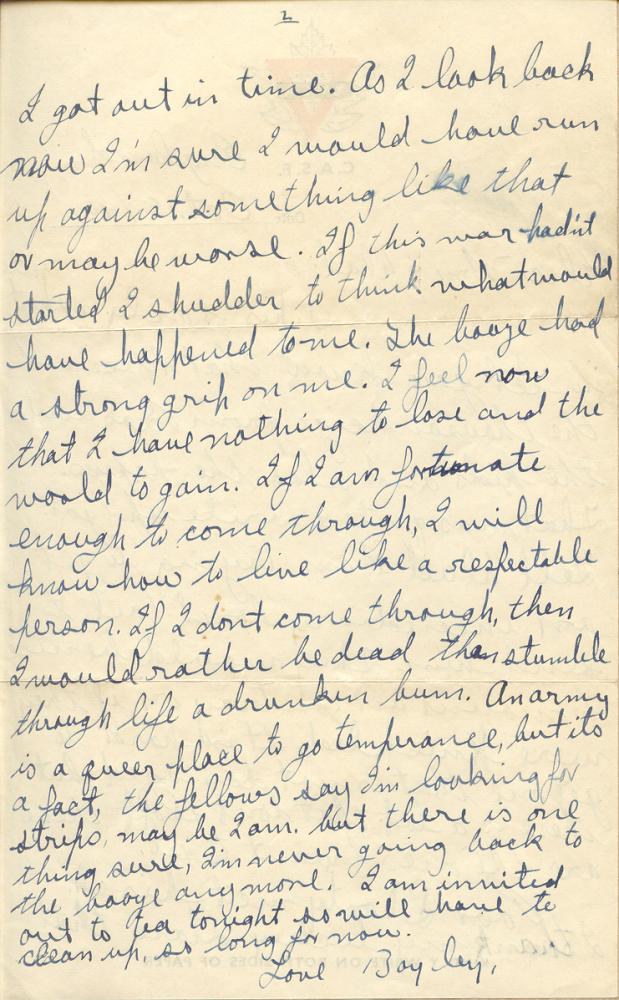 2
I got out in time. As I look back
now I'm sure I would have run
up against something like that
or maybe worse. If this war hadn't
started I shudder to think what would
have happened to me. The booze had
a strong grip on me. I feel now
that I have nothing to lose and the
world to gain. If I am fortunate
enough to come through, I will
know how to live like a respectable
person. If I dont come through, then
I would rather be dead than stumble
through life a drunken bum. An army
is a queer place to go temperance, but its
a fact, the fellows say I'm looking for
strips, may be I am. but there is one
thing sure, I'm never going back to
the booze any more. I am invited
out to tea tonight so will have to
clean up, so long for now.
Love